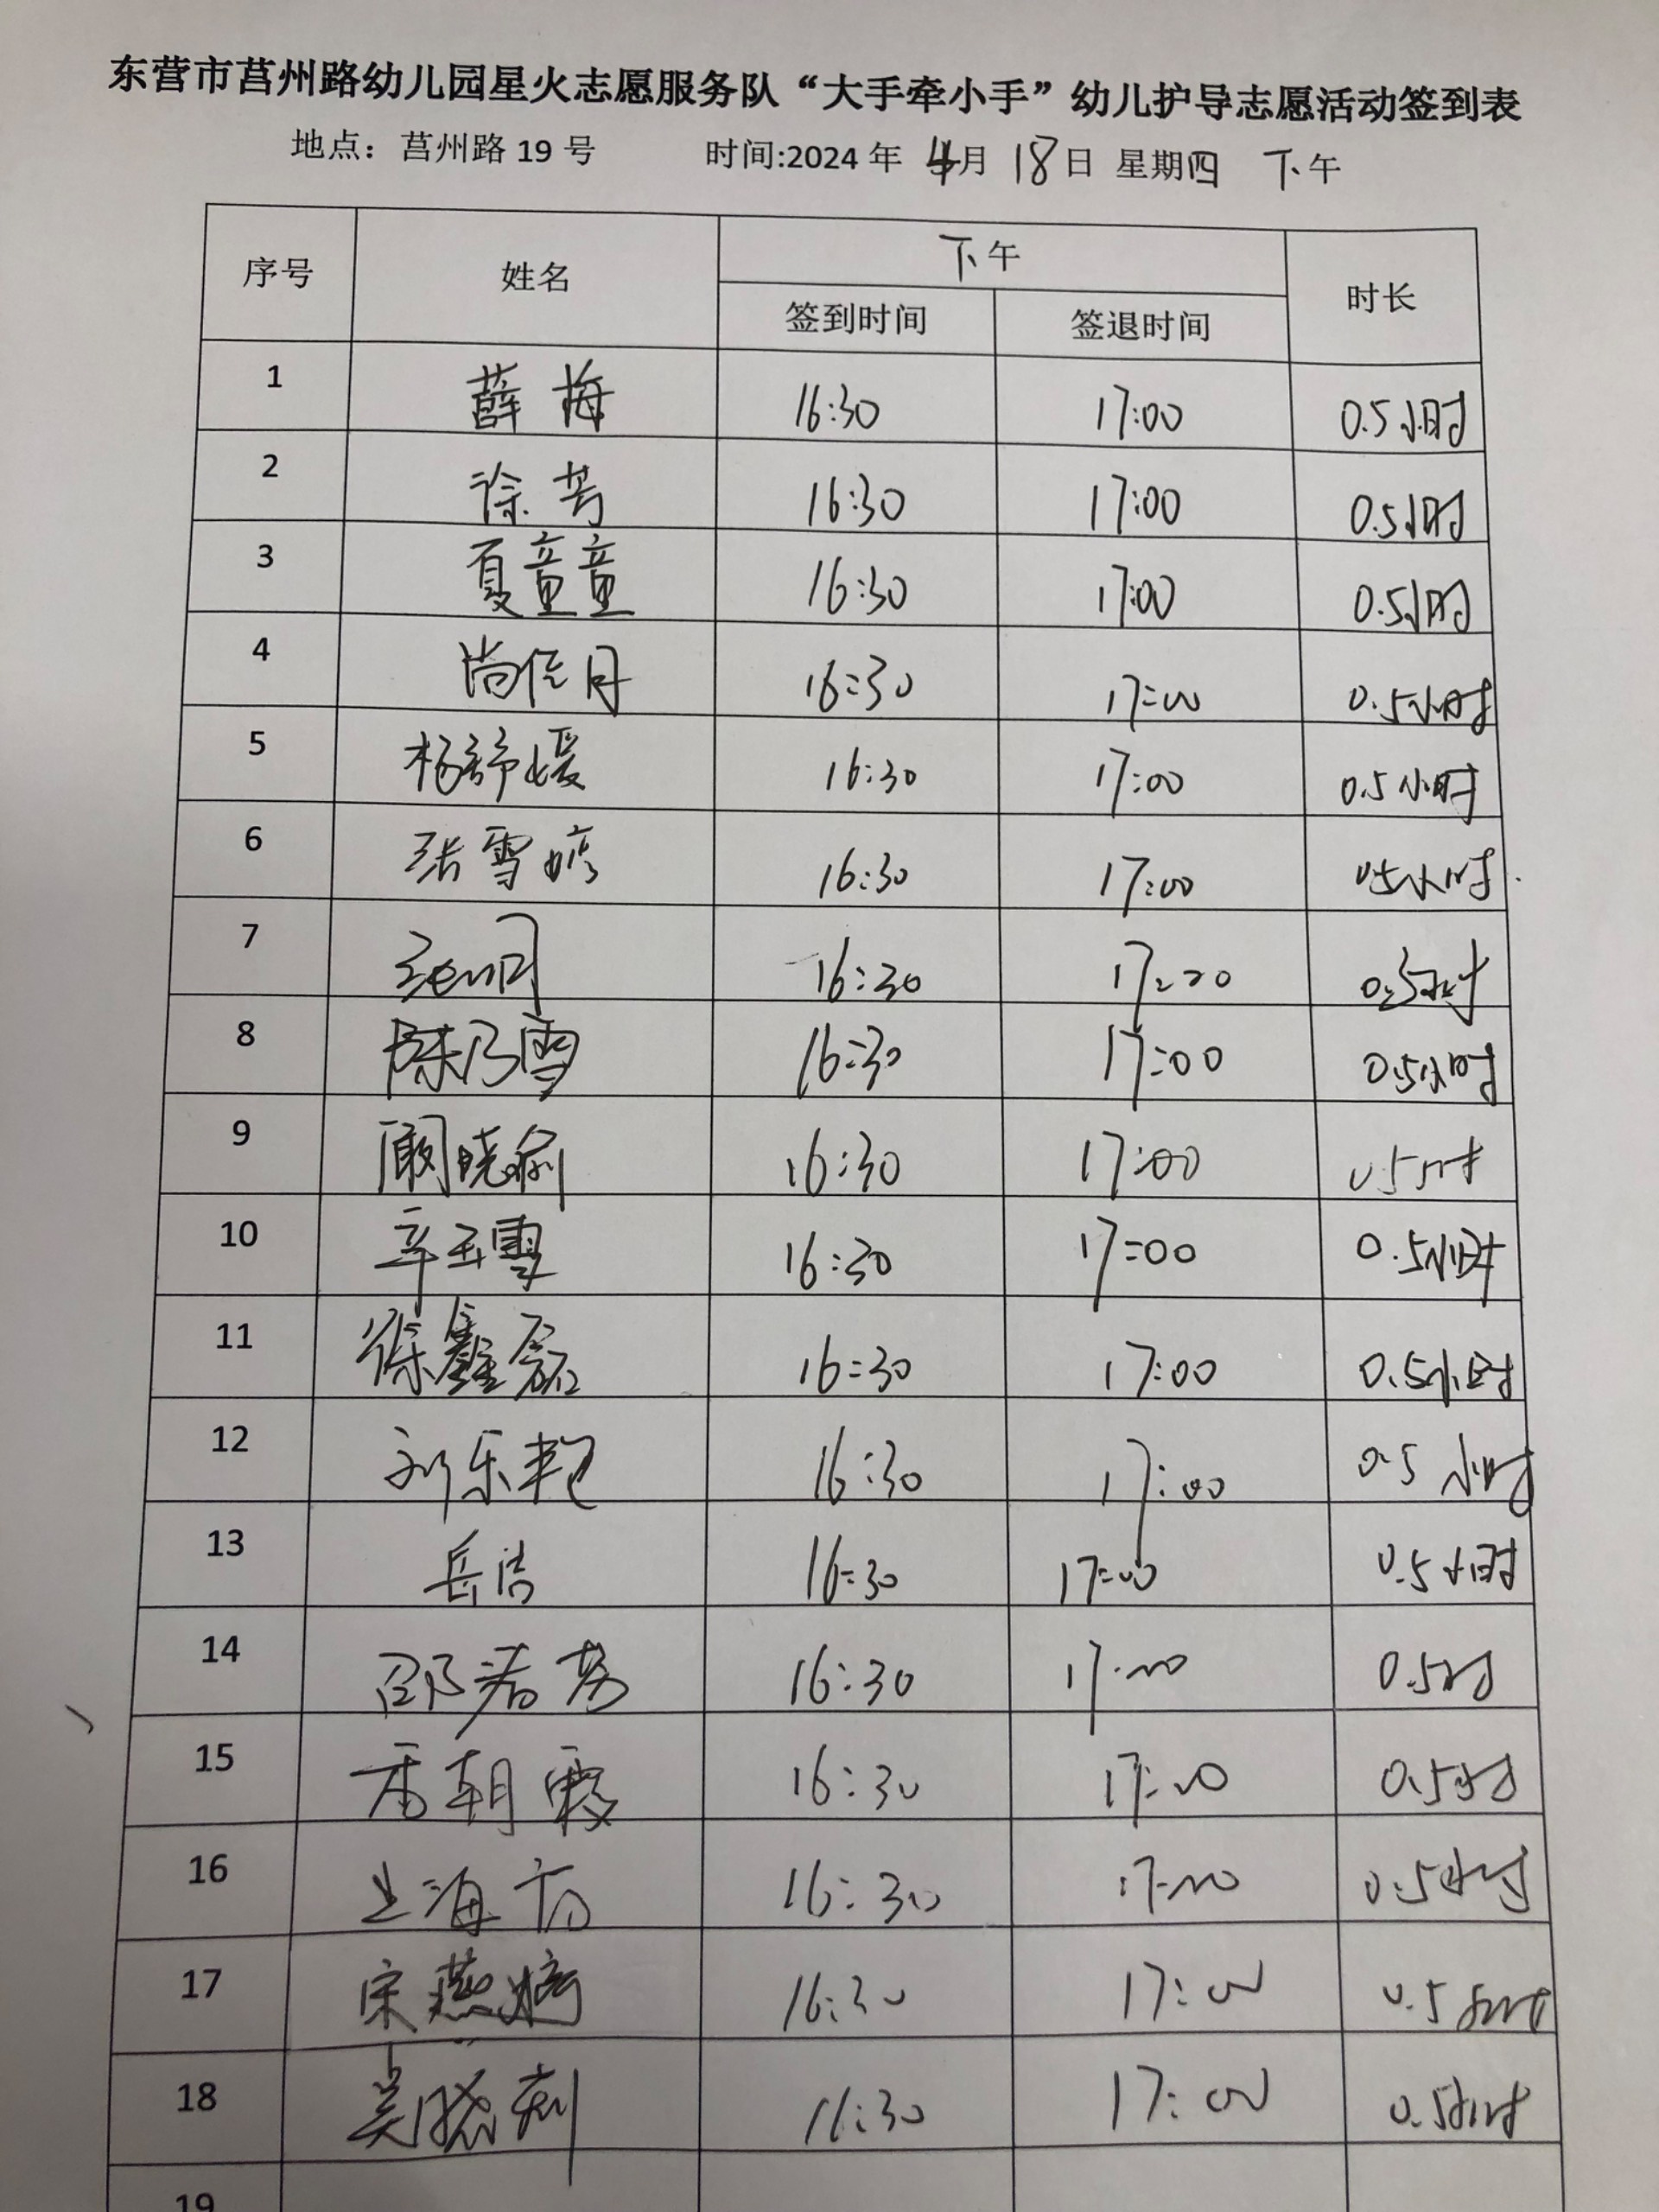 东营市莒州路幼儿园星火志愿服务队“大手牵小手”幼儿护导志愿活动签到表
地点：莒州路 19 号 时间:2024 年 4月 18日 星期四 下午
序号 姓名 下午 时长
签到时间 签退时间
1 薛梅 16:30 17:00 0.5小时
2 徐芳 16:30 17:00 0.5小时
3 夏童童 16:30 17:00 0.5小时
4 尚佳月 16:30 17:00 0.5小时
5 杨舒媛 16:30 17:00 0.5小时
6 张雪婷 16:30 17:00 0.5小时
7 16:30 17:00 0.5小时
8 陈乃雪 16:30 17:00 0.5小时
9 阚晓瑜 16:30 17:00 0.5小时
10 辛玉雪 16:30 17:00 0.5小时
11 徐鑫磊 16:30 17:00 0.5小时
12 刘乐艳 16:30 17:00 0.5小时
13 岳洁 16:30 17:00 0.5小时
14 邵若芳 16:30 17:00 0.5时
15 朝霞 16:30 17:00 0.5时
16 16:30 17:00 0.5小时
17 宋燕婷 16:30 17:00 0.5小时
18 吴晓莉 16:30 17:00 0.5小时
19